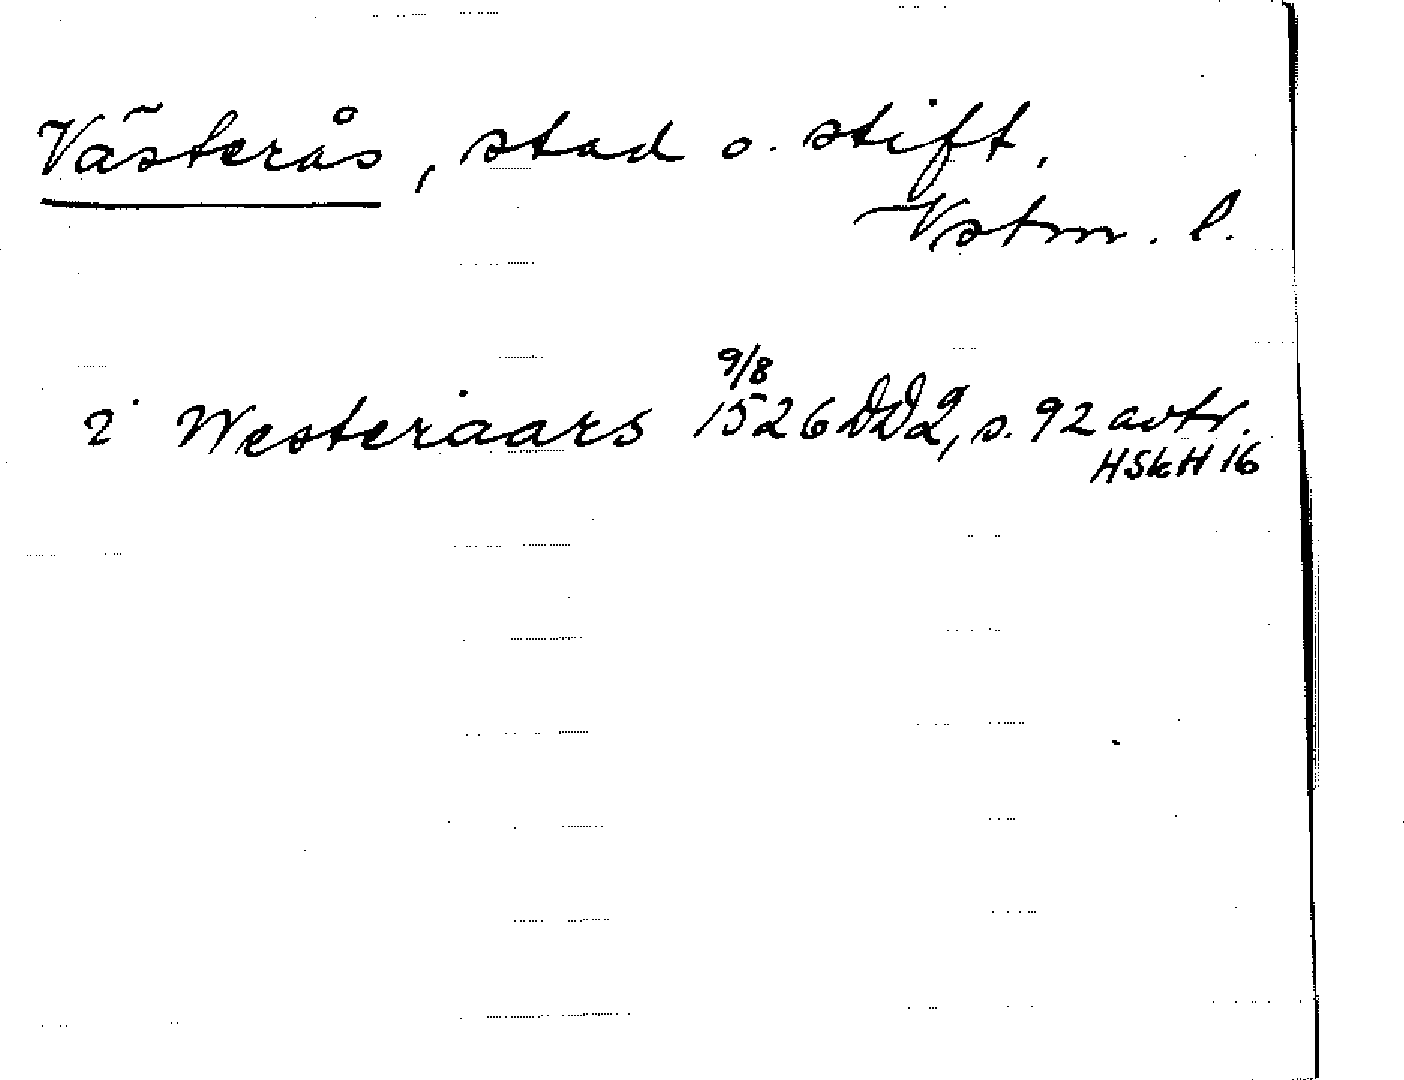 Västerås, stad o. stift,
Vstm. l.
i Westeraars 9/8 1526 DD2, s. 92 avtr.
HSkH 16